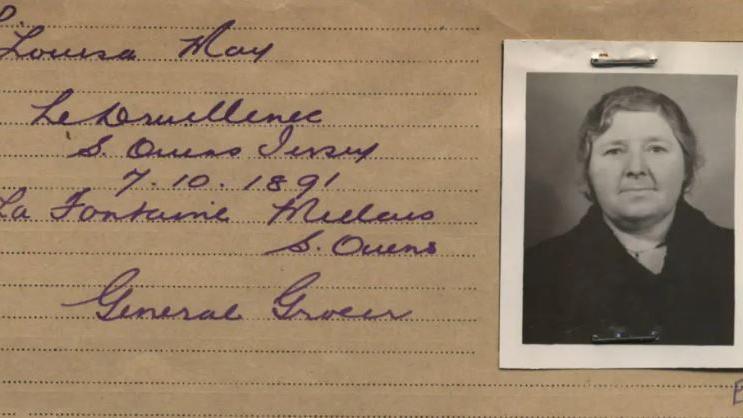 Louisa May
Le Druillenec
S. Ouens Jersey
7.10.1891
La Fontaine Millais
S. Ouens
General Grocer